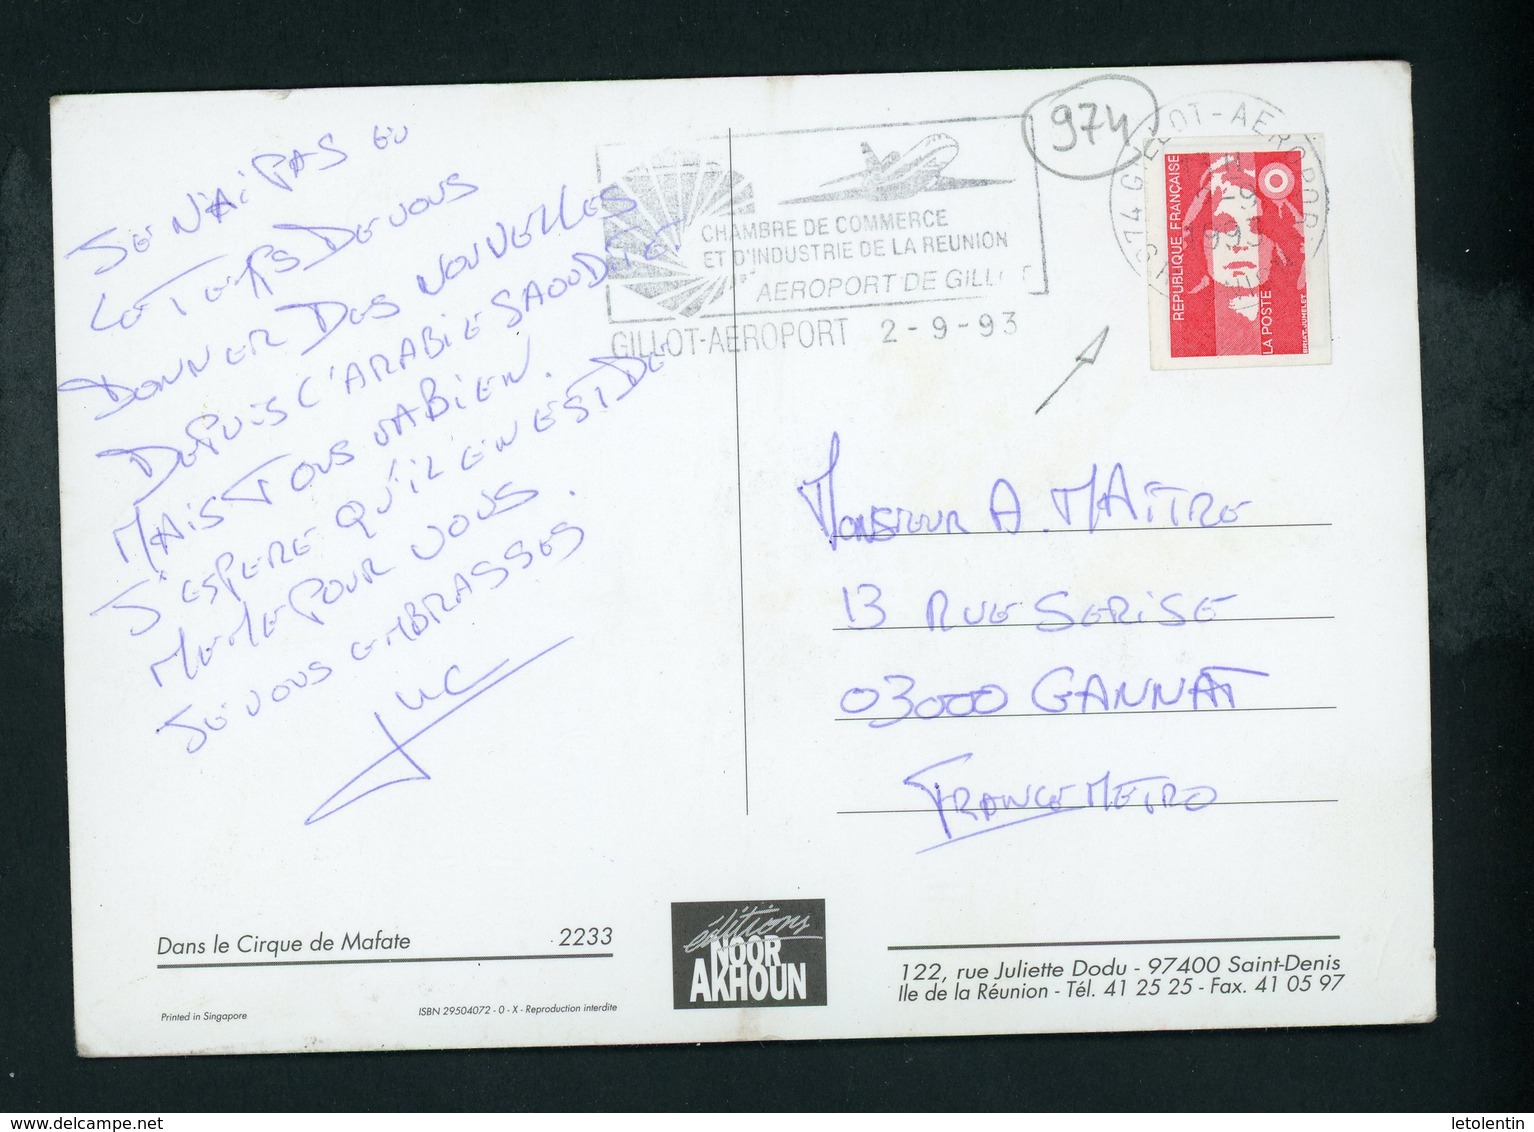 JE N'AI PAS EU
LE TEMPS DE VOUS
DONNER DES NOUVELLES
DEPUIS L'ARABIE SAOUDITE
MAIS TOUS VA BIEN.
J'ESPERE QU'IL EN EST DE
MEME POUR VOUS.
JE VOUS EMBRASSES
Luc
CHAMBRE DE COMMERCE
ET D'INDUSTRIE DE LA REUNION
AEROPORT DE GILLOT
GILLOT-AEROPORT 2-9-93
974
974 GILLOT-AEROPORT
2-9
1993
REPUBLIQUE FRANÇAISE
LA POSTE
BRIAT-JUMELET
MONSIEUR A. MAÎTRE
13 RUE SERISE
03000 GANNAT
FRANCE METRO
Dans le Cirque de Mafate 2233
Printed in Singapore
ISBN 29504072 - 0 - X - Reproduction interdite
éditions
NOOR
AKHOUN
122, rue Juliette Dodu - 97400 Saint-Denis
Ile de la Réunion - Tél. 41 25 25 - Fax. 41 05 97
letolentin